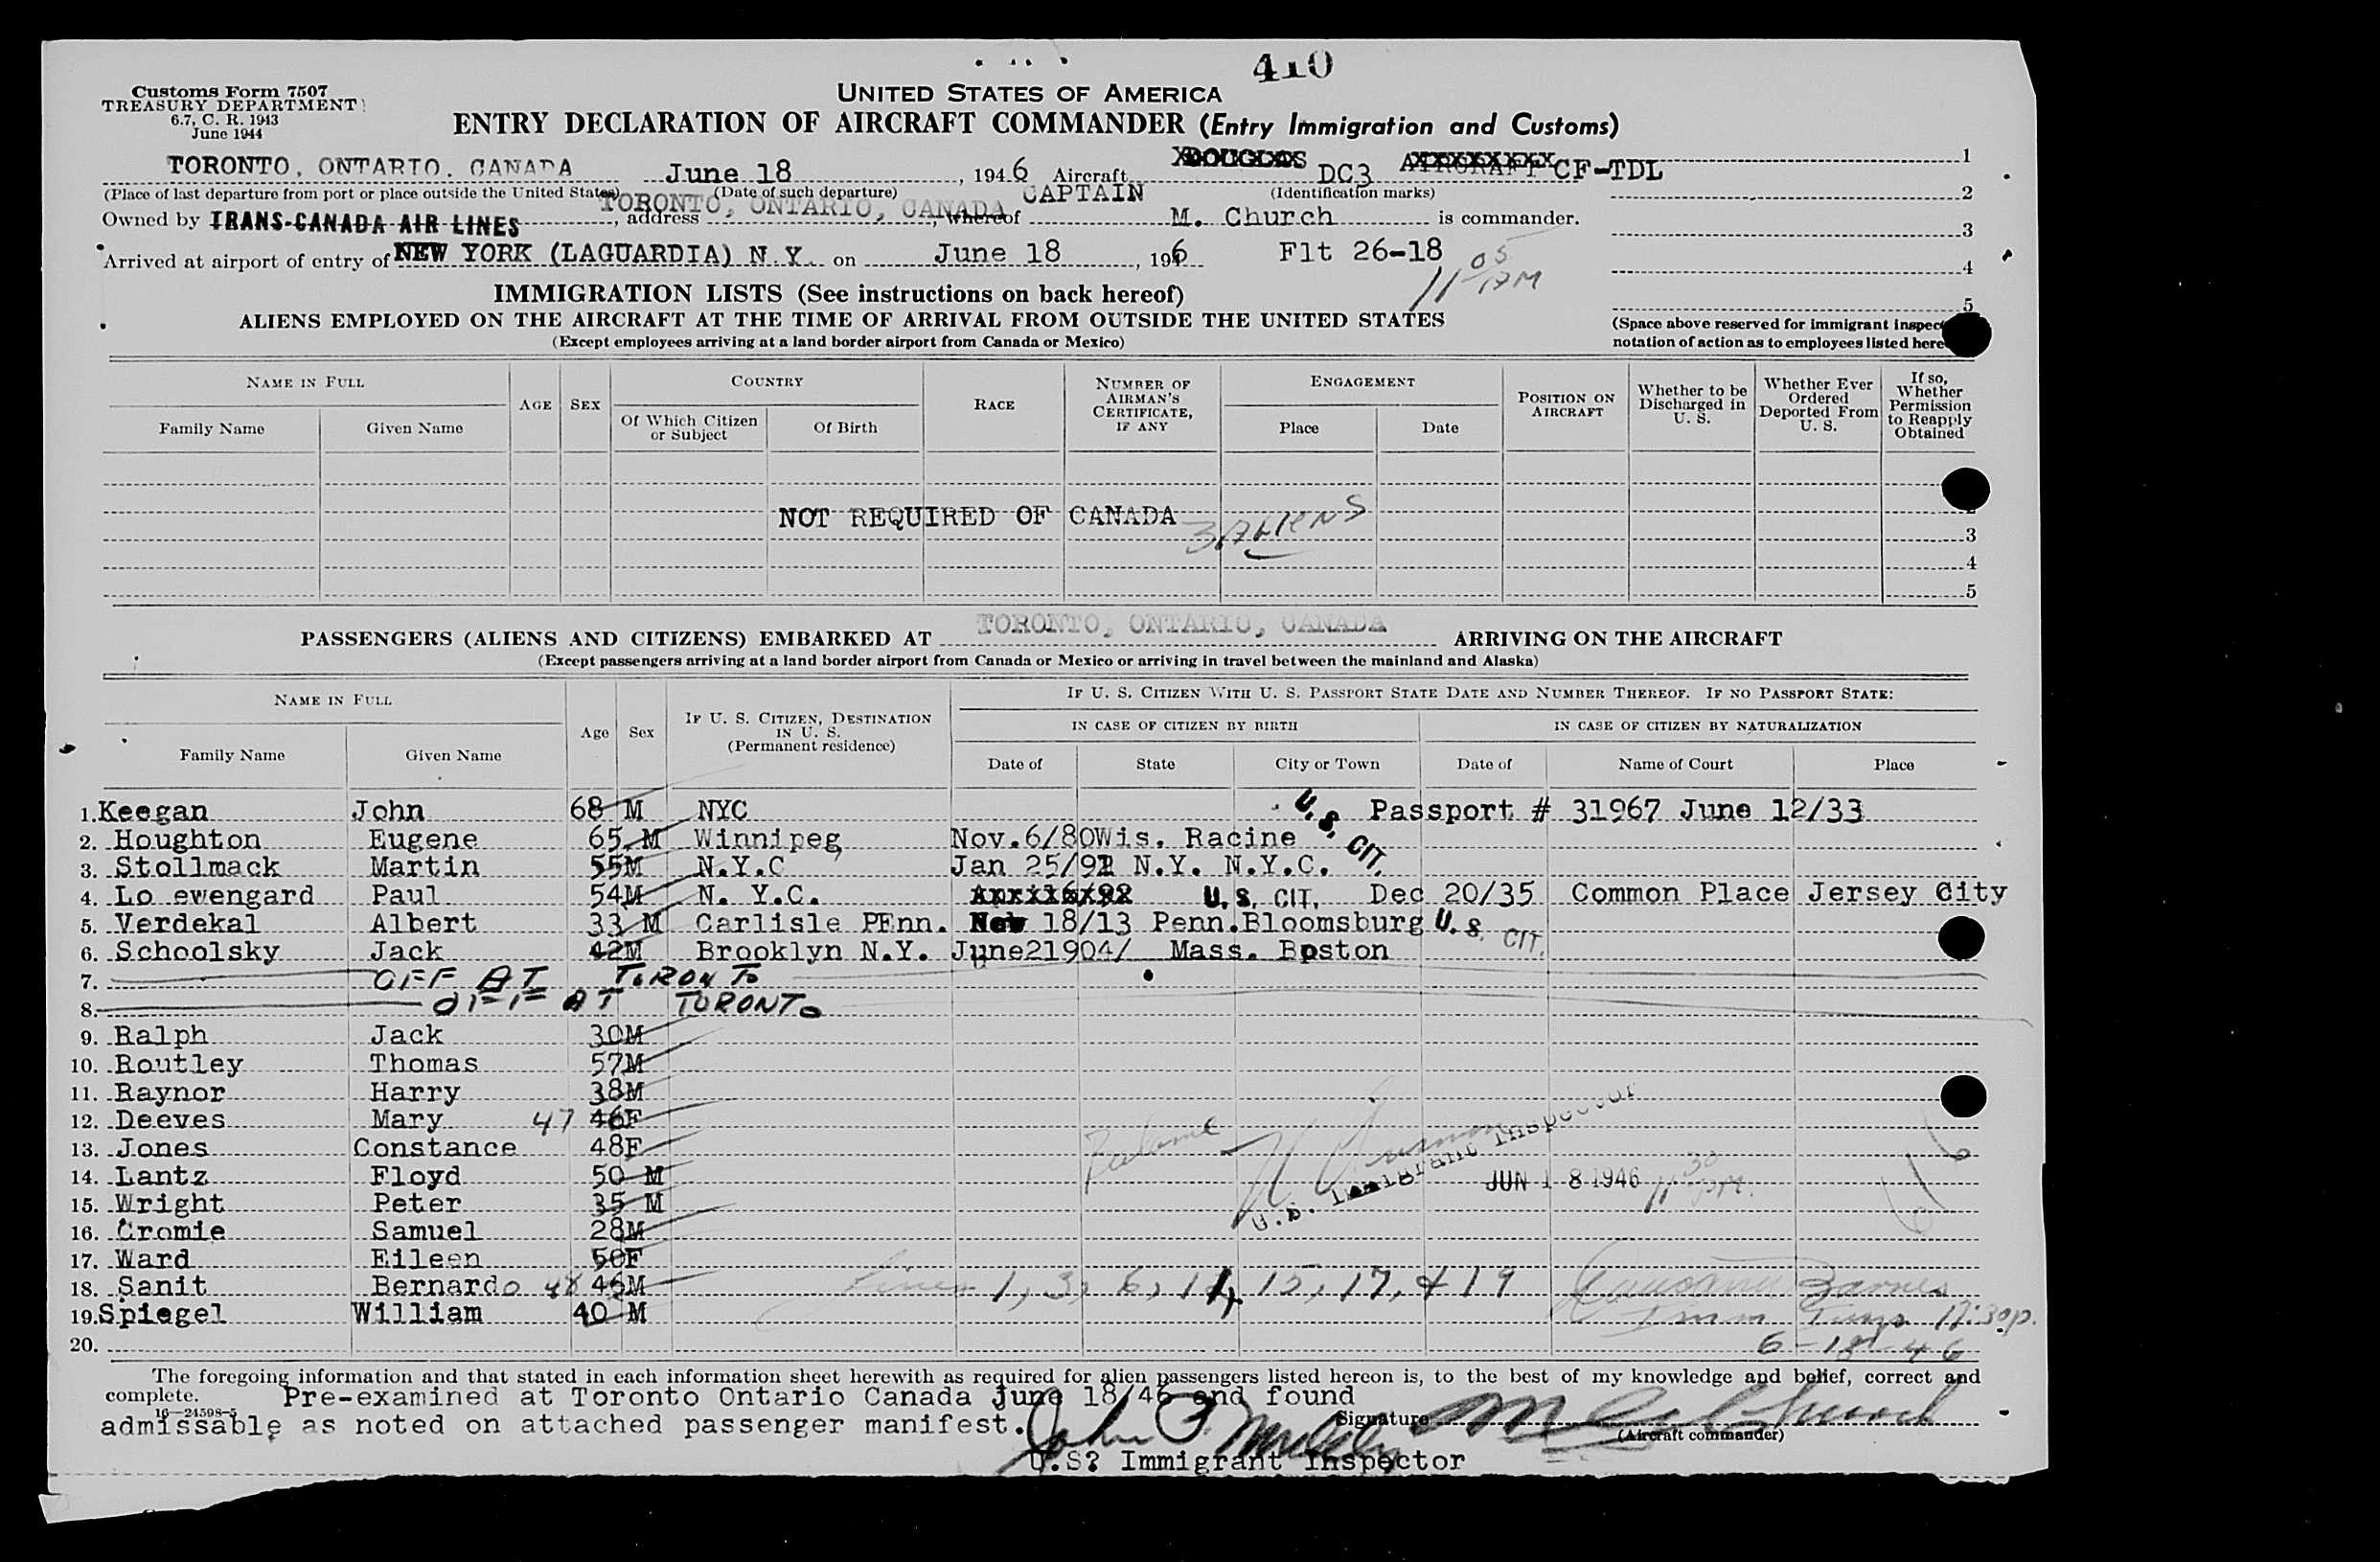 410
Customs Form 7507
TREASURY DEPARTMENT
6.7, C. R. 1943
June 1944
UNITED STATES OF AMERICA
ENTRY DECLARATION OF AIRCRAFT COMMANDER (Entry Immigration and Customs)
TORONTO, ONTARIO. CANADA June 18, 1946 Aircraft DOUGLAS DC3 AIRCRAFT CF-TDL 1
(Place of last departure from port or place outside the United States) (Date of such departure) (Identification marks) 2
Owned by TRANS-CANADA AIR LINES, address TORONTO, ONTARIO, CANADA, whereof CAPTAIN M. Church is commander.
3
Arrived at airport of entry of NEW YORK (LAGUARDIA) N.Y. on June 18, 1946 Flt 26-18 11 05 PM
4
5
IMMIGRATION LISTS (See instructions on back hereof)
ALIENS EMPLOYED ON THE AIRCRAFT AT THE TIME OF ARRIVAL FROM OUTSIDE THE UNITED STATES
(Except employees arriving at a land border airport from Canada or Mexico)
(Space above reserved for immigrant inspec
notation of action as to employees listed here
NAME IN FULL AGE SEX COUNTRY RACE NUMBER OF AIRMAN'S CERTIFICATE, IF ANY ENGAGEMENT POSITION ON AIRCRAFT Whether to be Discharged in U. S. Whether Ever Ordered Deported From U. S. If so, Whether Permission to Reapply Obtained
Family Name Given Name Of Which Citizen or Subject Of Birth Place Date
NOT REQUIRED OF CANADA 3 ALIENS
3
4
5
PASSENGERS (ALIENS AND CITIZENS) EMBARKED AT TORONTO, ONTARIO, CANADA ARRIVING ON THE AIRCRAFT
(Except passengers arriving at a land border airport from Canada or Mexico or arriving in travel between the mainland and Alaska)
NAME IN FULL Age Sex IF U. S. CITIZEN, DESTINATION IN U. S. (Permanent residence) IF U. S. CITIZEN WITH U. S. PASSPORT STATE DATE AND NUMBER THEREOF. IF NO PASSPORT STATE:
IN CASE OF CITIZEN BY BIRTH IN CASE OF CITIZEN BY NATURALIZATION
Family Name Given Name Date of State City or Town Date of Name of Court Place
1. Keegan John 68 M NYC U.S. CIT. Passport # 31967 June 12/33
2. Houghton Eugene 65 M Winnipeg Nov.6/80 Wis. Racine
3. Stollmack Martin 55M N.Y.C Jan 25/91 N.Y. N.Y.C.
4. Lo ewengard Paul 54M N. Y.C. U.S. CIT. Dec 20/35 Common Place Jersey City
5. Verdekal Albert 33 M Carlisle PEnn. Nov 18/13 Penn. Bloomsburg U.S. CIT.
6. Schoolsky Jack 42M Brooklyn N.Y. June21904/ Mass. Boston
7. OFF AT TORONTO
8. OFF AT TORONTO
9. Ralph Jack 30M
10. Routley Thomas 57M
11. Raynor Harry 38M
12. Deeves Mary 47 46F
13. Jones Constance 48F
14. Lantz Floyd 50 M
15. Wright Peter 35 M
U.S. Immigrant Inspector JUN 18 1946 11 30 PM.
16. Cromie Samuel 28M
17. Ward Eileen 50F
18. Sanit Bernardo 48 46M Lines 1, 3, 6, 14, 15, 17, + 19 Barnes
19. Spiegel William 40 M Imm Insp 11:30p.
20. 6-18-46
The foregoing information and that stated in each information sheet herewith as required for alien passengers listed hereon is, to the best of my knowledge and belief, correct and
complete. Pre-examined at Toronto Ontario Canada june 18/46 and found
16-24598-5
admissable as noted on attached passenger manifest. Signature
(Aircraft commander)
U.S? Immigrant Inspector